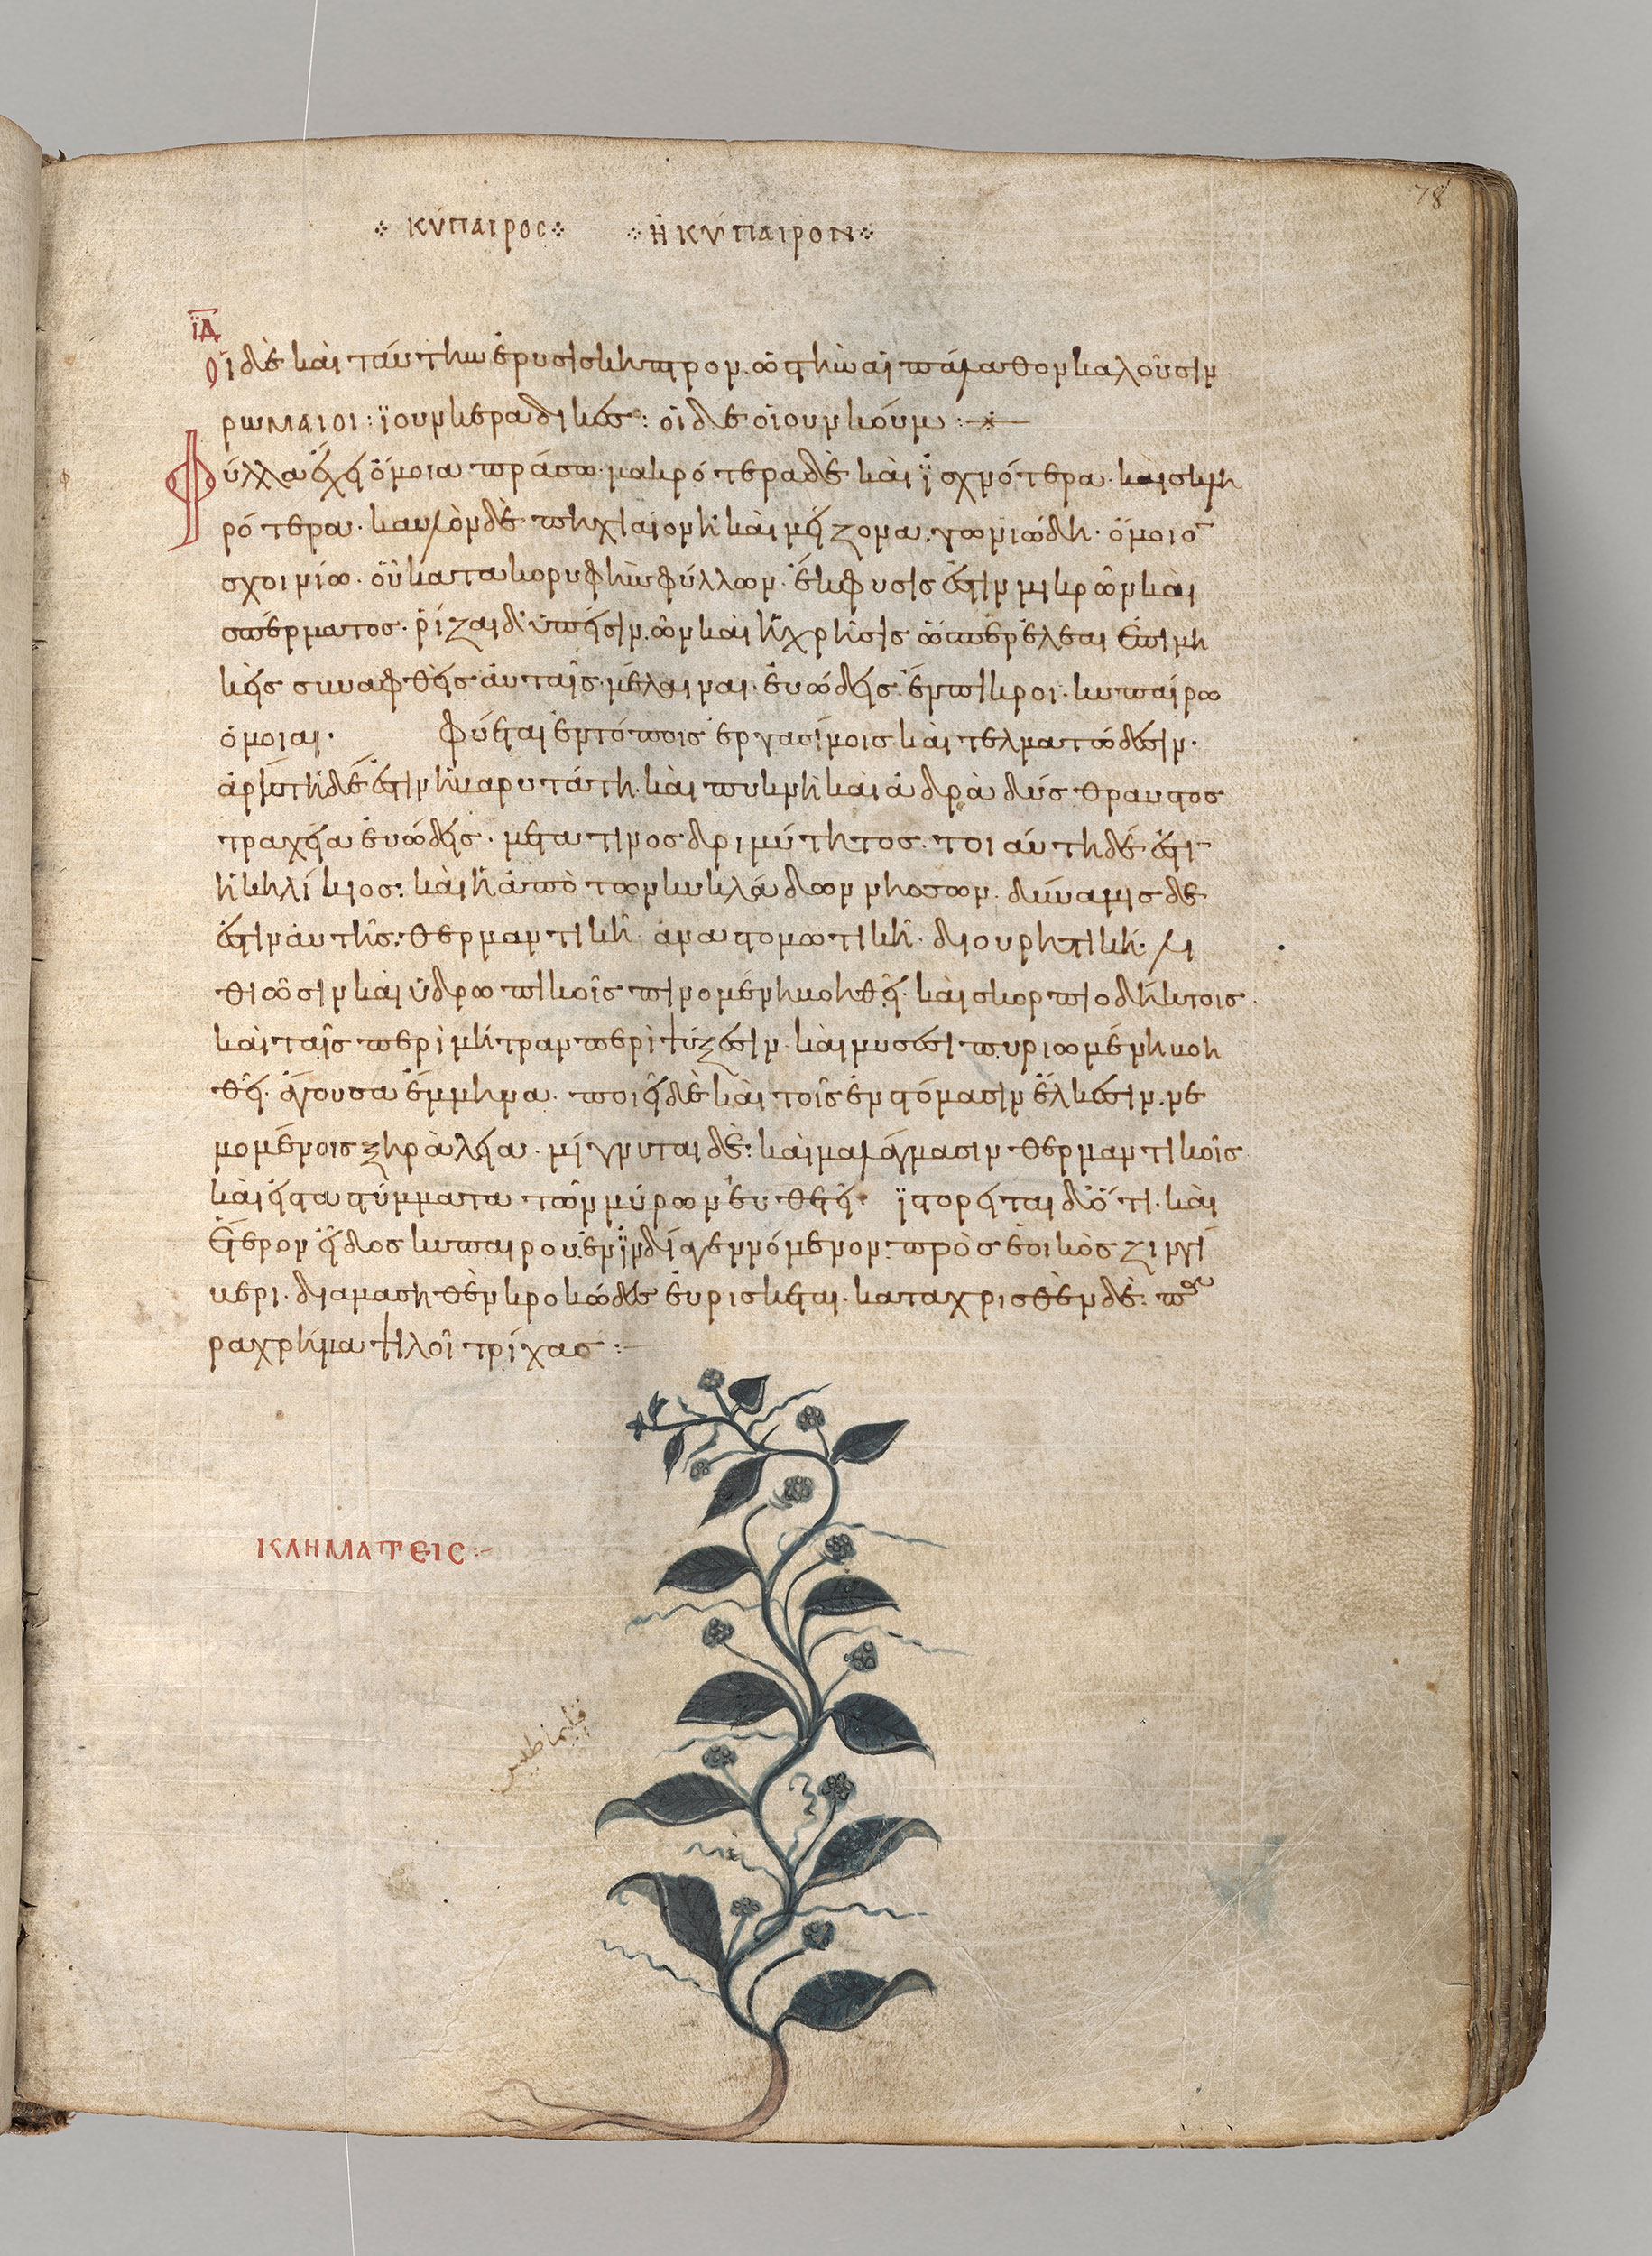 78
κύπαιρος ἢ κύπαιρον
ϊδ
Οἱ δὲ καὶ ταύτην ἐρυσίσκηπτρον. ὡς τὴν ἀσπάλαθον καλοῦσιν
ρωμαιοι : ϊουνκεραδικός : οἱ δε οϊουνκούμ :
Φύλλα ἔχει ὅμοια πράσω. μακρότερα δὲ καὶ ϊσχνότερα. καὶ σκλη
ρότερα. καυλὸν δὲ πηχιαῖον ἢ καὶ μείζονα. γωνιώδη. ὅμοιο
σχοινίω. οὗ κατα κορυφὴν φύλλων. ἔκφυσις ἐστὶν μικρῶν καὶ
σπέρματος. ῥίζαι δ' ὕπεισιν. ὧν καὶ ἡ χρῆσις ὥσπερ ἐλεαι ἐπιμη
κεις συναφθεῖς ἀυταῖς. μέλαιναι. ἐυώδεις. ἔμπικροι. κυπαίρω
ὁμοιαι. φύεται ἐν τόποις ἐργασίμοις καὶ τελματώδεσιν.
ἀρίστη δέ ἐστιν ἡ βαρυτάτη. καὶ πυκνὴ καὶ ἁδρὰ δύσθραυστος
τραχεία ἐυώδης. μετα τινος δριμύτητος. τοιαύτη δέ ἐστι
ἡ κηλίκιος: καὶ ἡ ἀπὸ των κυκλάδων νησων. δύναμις δε
ἐστὶν ἀυτῆς: θερμαντικὴ. ἀναστομωτικὴ. διουρητικὴ. λι
θιῶσιν καὶ ὑδρωπικοῖς πινομένη βοηθεῖ. καὶ σκορπιοδήκτοις.
καὶ ταῖς περὶ μήτραν περιψύξεσιν. καὶ μύσεσι πυριωμένη βοη
θεῖ. ἄγουσα ἔμμηνα. ποιεῖ δὲ καὶ τοῖς ἐν στόμασιν ἕλκεσιν. νε
μομένοις ξηρὰ λεία. μίγνυται δὲ: καὶ μαλάγμασιν θερμαντικοῖς
καὶ εἰς τα στύμματα τῶν μύρων ἐυθετεῖ. ϊστορεῖται δ' ὅτι. καὶ
ἕτερον εἶδος κυπαιρου. ἐν ϊνδία γεννόμενον: προσεοικὸς ζιγγί
βερι. διαμασηθὲν κροκώδες ἑυρισκεται. καταχρισθὲν δὲ. πα
ραχρῆμα ψιλοῖ τρίχας :
ΚΛΗΜΑΤΕΙΣ
قليماطيس